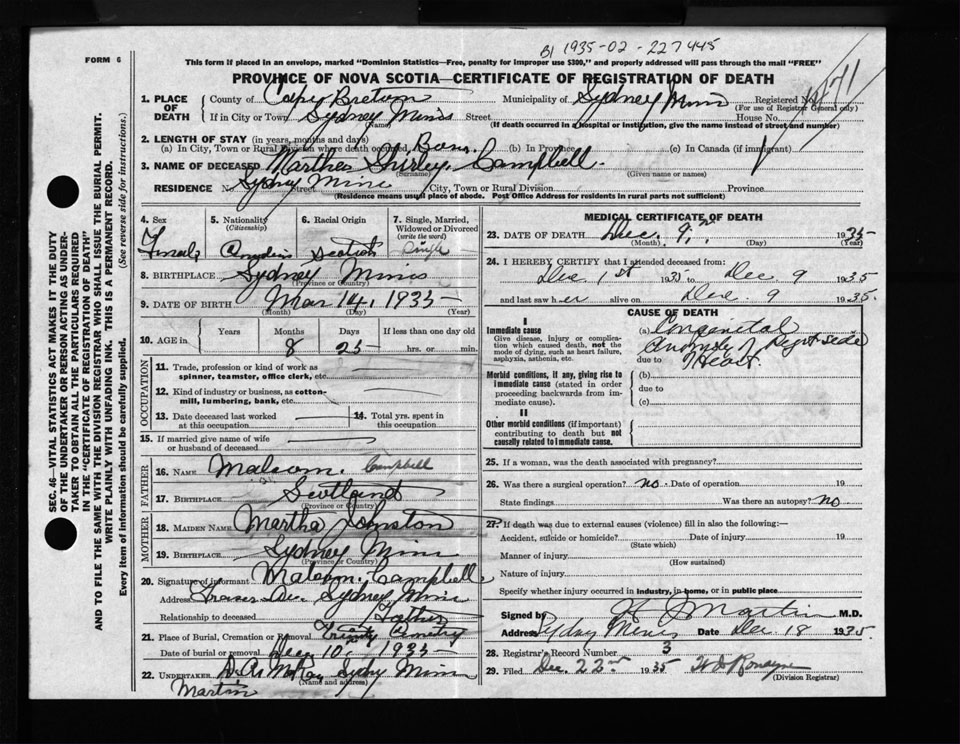 B1 1935-02-227445
FORM 6
This form if placed in an envelope, marked "Dominion Statistics—Free, penalty for improper use $300," and properly addressed will pass through the mail "FREE"
PROVINCE OF NOVA SCOTIA—CERTIFICATE OF REGISTRATION OF DEATH
1. PLACE OF DEATH
County of Cape Breton Municipality of Sydney Mines Registered No.
(For use of Registrar General only)
If in City or Town Sydney Mines Street House No.
(Name) (If death occurred in a hospital or institution, give the name instead of street and number)
2. LENGTH OF STAY (in years, months and days)
(a) In City, Town or Rural Division where death occurred (b) In Province (c) In Canada (if immigrant)
3. NAME OF DECEASED Martha Shirley Campbell.
(Surname) (Given name or names)
RESIDENCE No. Sydney Mines Street City, Town or Rural Division Province
(Residence means usual place of abode. Post Office Address for residents in rural parts not sufficient)
4. Sex Female
5. Nationality (Citizenship) Canadian
6. Racial Origin Scotish
7. Single, Married, Widowed or Divorced (write the word) Single
8. BIRTHPLACE Sydney Mines
(Province or Country)
9. DATE OF BIRTH Mar 14, 1935
(Month) (Day) (Year)
10. AGE in Years Months Days If less than one day old
8 25 hrs. or min.
OCCUPATION
11. Trade, profession or kind of work as spinner, teamster, office clerk, etc.
12. Kind of industry or business, as cotton-mill, lumbering, bank, etc.
13. Date deceased last worked at this occupation
14. Total yrs. spent in this occupation
15. If married give name of wife or husband of deceased
FATHER
16. NAME Malcom. Campbell
17. BIRTHPLACE Scotland
(Province or Country)
MOTHER
18. MAIDEN NAME Martha Johnston
19. BIRTHPLACE Sydney Mines
(Province or Country)
20. Signature of informant Malcom. Campbell
Address Sydney Mines
Relationship to deceased Father
21. Place of Burial, Cremation or Removal Trinity Cemetry
Date of burial or removal Dec 10, 1935
22. UNDERTAKER Sydney Mines
(Name and address)
Martin
MEDICAL CERTIFICATE OF DEATH
23. DATE OF DEATH Dec. 9, 1935
(Month) (Day) (Year)
24. I HEREBY CERTIFY that I attended deceased from:
Dec 1st 1935 Dec 9 1935
and last saw her alive on Dec. 9 1935.
CAUSE OF DEATH
I
Immediate cause
Give disease, injury or complication which caused death, not the mode of dying, such as heart failure, asphyxia, asthenia, etc.
(a) Congenital
Anomaly of Right side
due to of Heart
Morbid conditions, if any, giving rise to immediate cause (stated in order proceeding backwards from immediate cause).
(b)
due to
(c)
II
Other morbid conditions (if important) contributing to death but not causally related to immediate cause.
25. If a woman, was the death associated with pregnancy?
26. Was there a surgical operation? no. Date of operation 19
State findings Was there an autopsy? no
27. If death was due to external causes (violence) fill in also the following:—
Accident, suicide or homicide? Date of injury 19
(State which)
Manner of injury
(How sustained)
Nature of injury
Specify whether injury occurred in industry, in home, or in public place
Signed by Martin M.D.
Address Sydney Mines Date Dec 18 1935.
28. Registrar's Record Number 3
29. Filed Dec. 23rd 1935
(Division Registrar)
SEC. 46—VITAL STATISTICS ACT MAKES IT THE DUTY
OF THE UNDERTAKER OR PERSON ACTING AS UNDER-
TAKER TO OBTAIN ALL THE PARTICULARS REQUIRED
IN THE "CERTIFICATE OF REGISTRATION OF DEATH"
AND TO FILE THE SAME WITH THE DIVISION REGISTRAR WHO SHALL ISSUE THE BURIAL PERMIT.
WRITE PLAINLY WITH UNFADING INK. THIS IS A PERMANENT RECORD.
Every item of information should be carefully supplied. (See reverse side for instructions.)